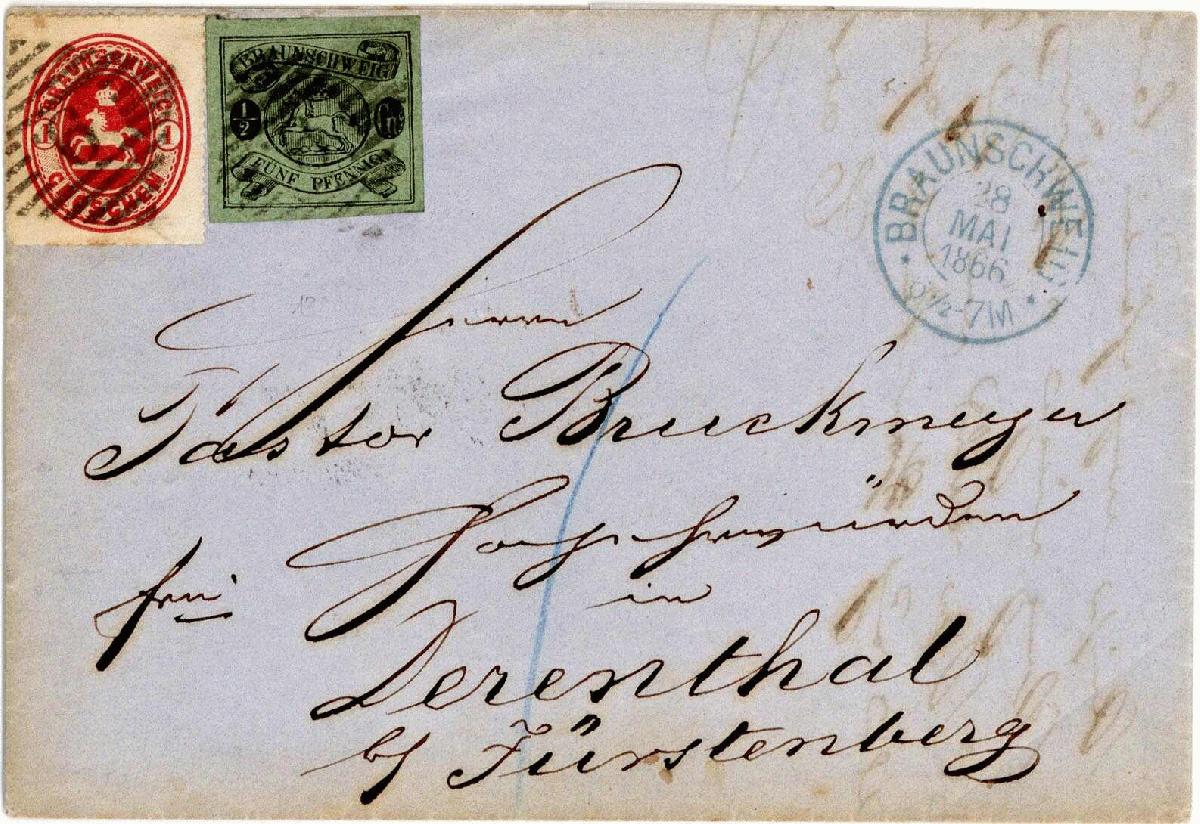 BRAUNSCHWEIG
1 1
GROSCHEN
BRAUNSCHWEIG
1/2 Gr
FÜNF PFENNIG
BRAUNSCHWEIG
28
MAI
1866
6½-7M
Herrn
Pastor Bruckmeyer
Hochehrwürden
frei
in
Derenthal
b/ Fürstenberg